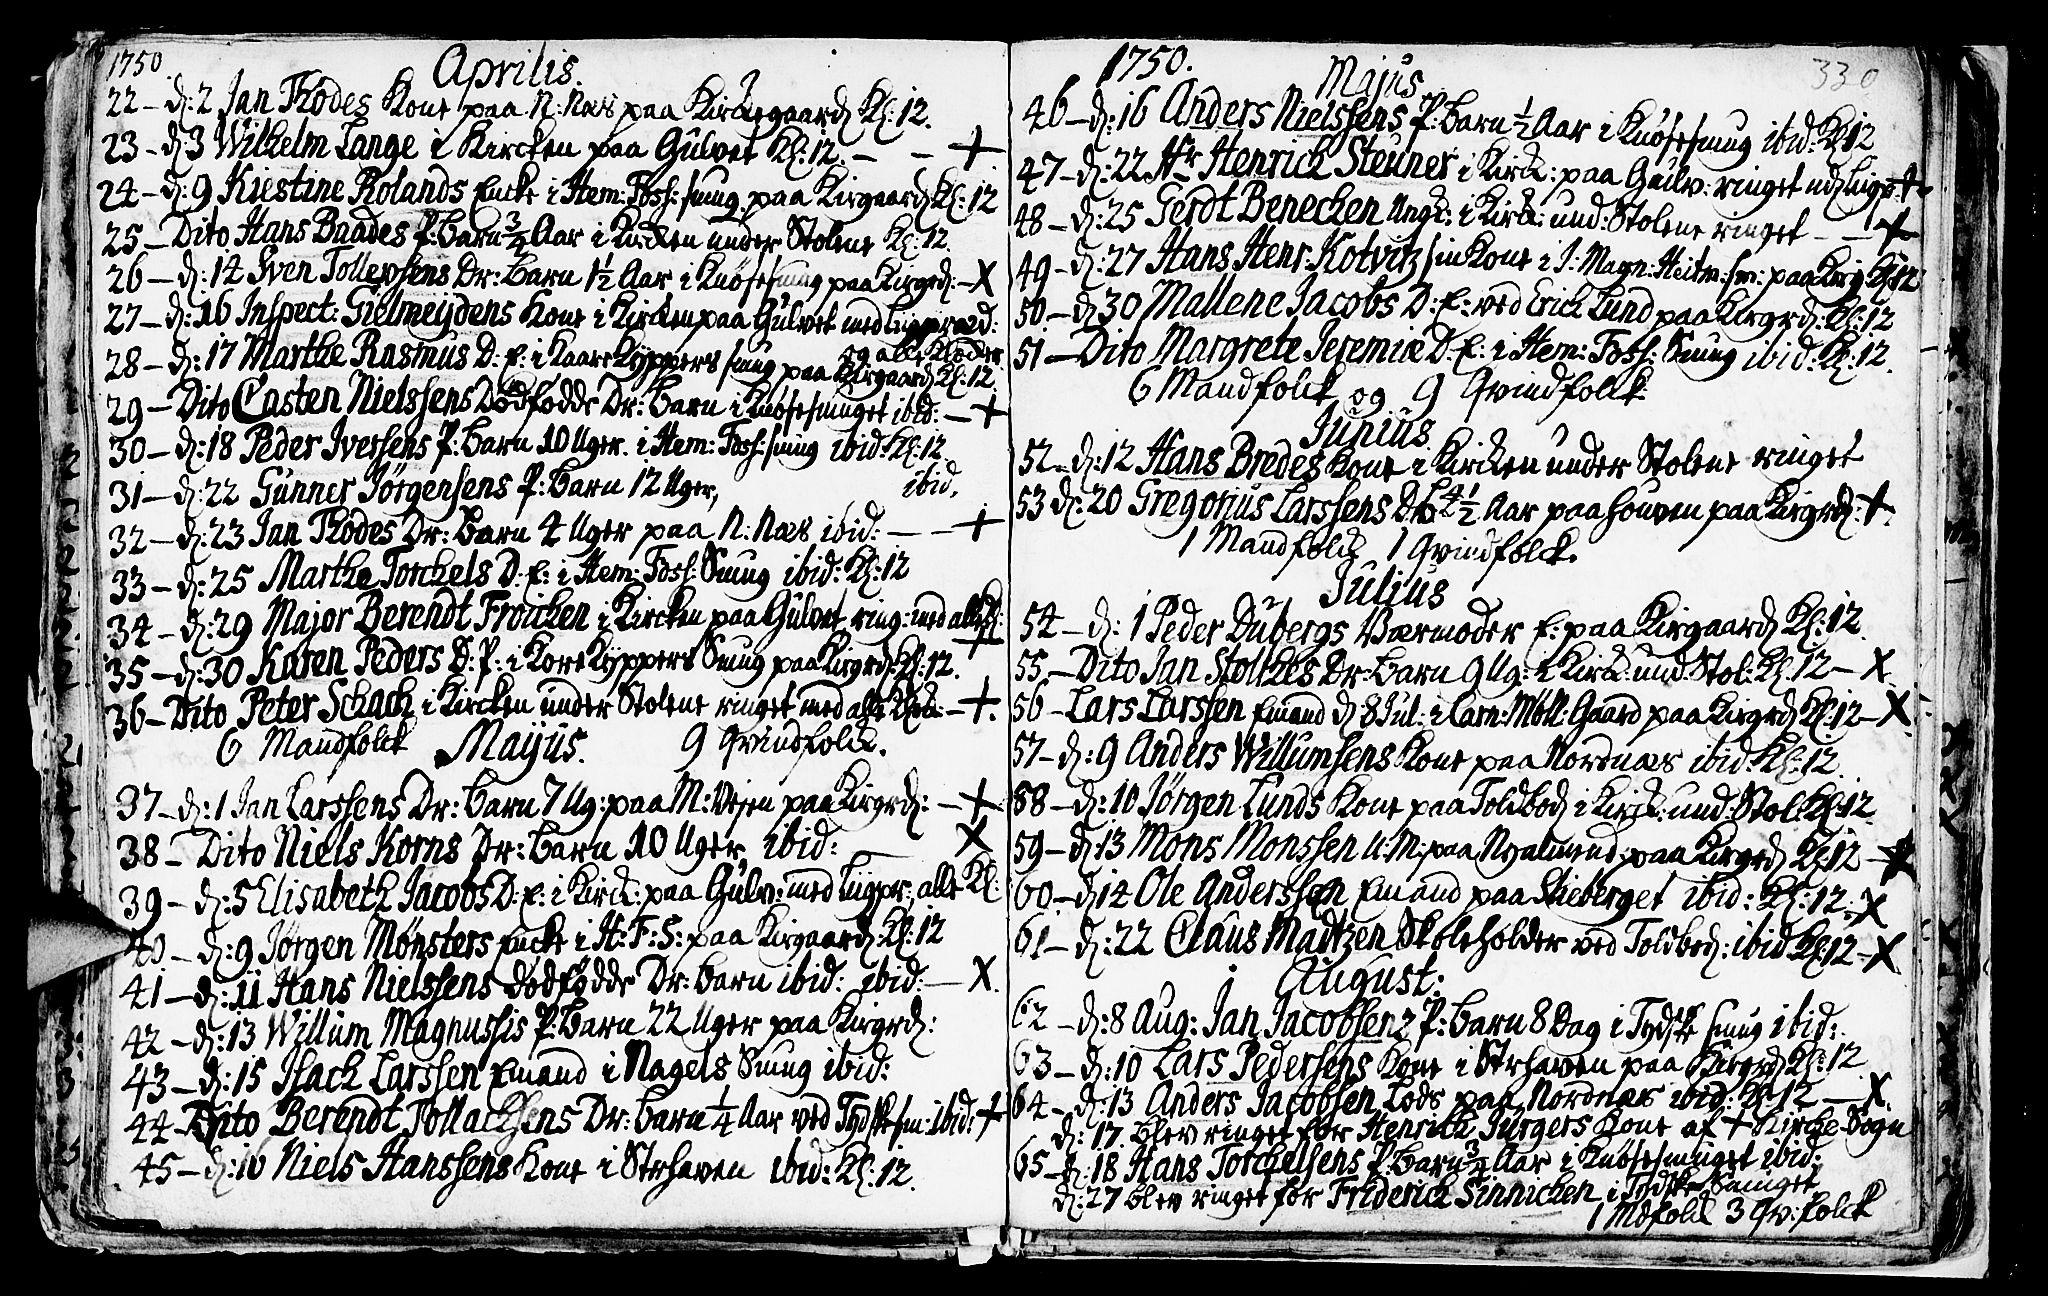 1750. Aprilis.
22 – d: 2 Jan Rodes Kone paa N: Næs paa Kirkegaard Kl: 12.
23 – d: 3 Wilhelm Lange i Kircken paa Gulvet Kl: 12. – – +
24 – d: 9 Kiestine Rolands Encke i Hem: Foss: smug paa Kirgaard Kl: 12
25 – Dito Hans Baades P: Barn 3/4 Aar i Kircken under Stolene Kl: 12.
26 – d: 14 Sven Tollevsens Dr: Barn 1 1/2 Aar i Knøsesmug paa Kirgrd: – X
27 – d: 16 Inspect: Gielmeijdens Kone i Kircken paa Gulvet med Ligpræd:
og alle Kloder
28 – d: 17 Marthe Rasmus D: E: i Kaare Kyppers smug paa Kirgaard Kl: 12.
29 – Dito Casten Nielssens Dødfødde Dr: Barn i Knøsesmuget ibid: – +
30 – d: 18 Peder Iverssens P: Barn 10 Uger. i Hem: Foss: smug ibid: Kl: 12.
31 – d: 22 Gunner Jørgensens P: Barn 12 Uger, ibid.
32 – d: 23 Jan Rodes Dr: Barn 4 Uger paa N: Næs ibid: – – +
33 – d: 25 Marthe Torckels D: E: i Hem: Foss: Smug ibid: Kl: 12
34 – d: 29 Major Berendt Froichen i Kircken paa Gulvet ring: med alle Kl: +
35 – d: 30 Karen Peders D: P: i Kore Kyppers Smug paa Kirgrd: Kl: 12.
36 – Dito Peter Schach i Kircken under Stolene ringet med alle Klok: – +.
6 Mandfolck Mayus. 9 Qvindfolck.
37 – d: 1 Jan Larssens Dr: Barn 7 Ug: paa M: Vejen paa Kirgrd: – +
38 – Dito Niels Korns Dr: Barn 10 Uger, ibid: X
39 – d: 5 Elisabeth Jacobs D: E: i Kirck: paa Gulv: med Ligpr:, alle Kl:
40 – d: 9 Jørgen Mønsters Encke i H: F: S: paa Kirgaard: Kl: 12
41 – d: 11 Hans Nielssens Dødfødde Dr: Barn ibid: ibid: – X.
42 – d: 13 Willum Magnussis P: Barn 22 Uger paa Kirgrd:
43 – d: 15 Isach Larssen Emand i Nagels Smug ibid:
44 – Dito Berendt Tollachsens Dr: Barn 1/4 Aar ved Tydskesm: ibid: +
45 – d: 16 Niels Hanssens Kone i Strhaven ibid: Kl: 12.
1750. Majus 330
46 – d: 16 Anders Nielssens P: Barn 1/2 Aar i Knøsesmug ibid: Kl: 12
47 – d: 22 Hr Henrich Steuner i Kirck: paa Gulv: ringet +
48 – d: 25 Gerdt Benecken Ungk: i Kirck: und: Stolene ringet – – +
49 – d: 27 Hans Henr: Kotvitz sin Kone i J: Magn: Heitm: sm: paa Kirg Kl: 12
50 – d: 30 Mallene Jacobs D: E: ved Erich Lund paa Kirgrd: Kl: 12
51 – Dito Margrete Jeremiæ D: E: i Hem: Foss: Smug ibid: Kl: 12.
6 Mandfolck og 9 Qvindfolck
Junius
52 – d: 12 Hans Bredes Kone i Kircken under Stolene ringet
53 d: 20 Gregorius Larssens Dr: B: 4 1/2 Aar paa Houven paa Kirgrd: +
1 Mandfolck 1 Qvindfolck.
Julius
54 – d: 1 Peder Dubergs Værmoder E: paa Kirgaard Kl: 12.
55 – Dito Jan Stolthes Dr: Barn 9 Ug: i Kirck: und Stol: Kl: 12 – X.
56 – Lars Larssen Emand d 8 Jul: i Carn: Møll: Gaard paa Kirgrd Kl: 12 – X
57 – d: 9 Anders Willumsens Kone paa Nordnæs ibid: Kl: 12
58 – d: 10 Jørgen Lunds Kone paa Toldbod i Kirck: und: Stol: Kl: 12.
59 – d: 13 Mons Monssen U: M: paa paa Kirgrd Kl: 12 –
60 – d: 14 Ole Anderssen Emand paa ibid: Kl: 12. X
61 – d: 22 Claus Madtzen Skoleholder ved Toldbod: ibid Kl: 12 – X
August:
62 – d: 8 Aug: Jan Jacobsens P: Barn 8 Dag i Tydske smug ibid:
63 – d: 10 Lars Pedersens Kone i Strhaven paa Kirgrd Kl: 12
64 – d: 13 Anders Jacobsen Lods paa Nordnæs ibid: Kl: 12 – X.
d: 17 blev ringet for Henrich Jurgers Kone af + Kirche Sogn
65 – d: 18 Hans Torchelsens P: Barn 3/4 Aar i Knøsesmuget ibid:
d: 27 blev ringet for Friderich Sinnichen i Tydske Smuget
1 Mdfolck 3 Qv: folck